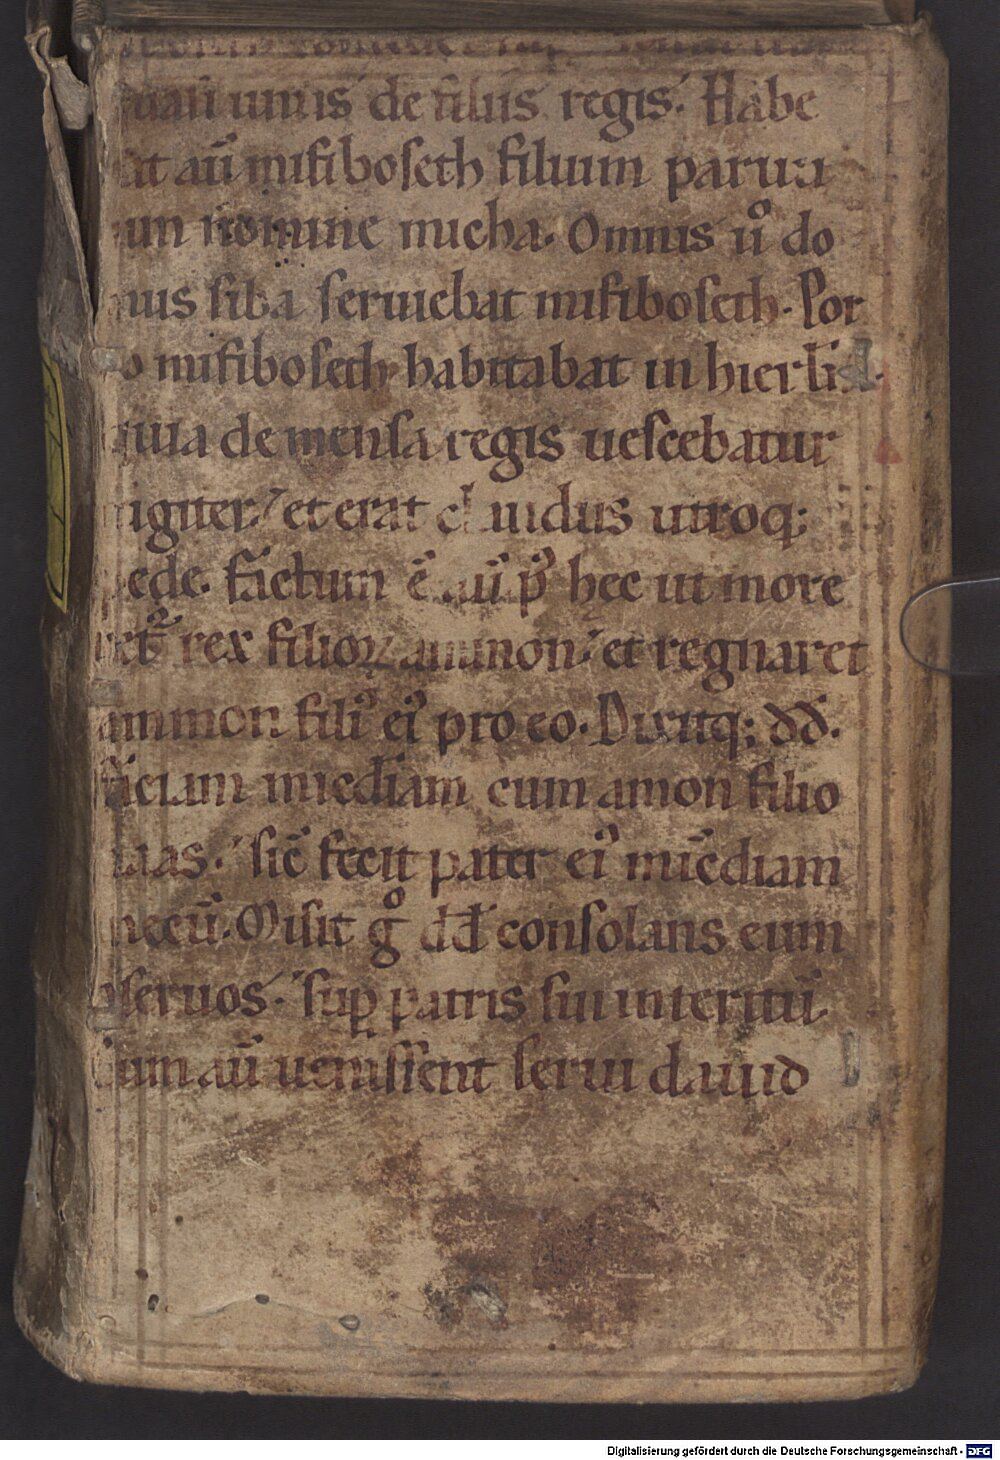 unus de filiis regis. Habe
at au᷑ mifiboseth filium paruu
nomine micha. Omnis u᷑o do
mus siba seruiebat mifiboseth. Por
o mifiboseth habitabat in hierl᷑m.
quia de mensa regis uescebatur
igiter. et erat claudus utroq;
pede. Factum ē au᷑ p᷑ hec ut more
ret᷑ rex filioꝝ ammon. et regnaret
ammon fili᷑ ei᷑ pro eo. Dixitq; dd̄.
faciam mi̅ediam cum amon filio
naas. sic̄ fecit pater ei᷑ mi̅ediam
mecū. Misit gͦ dd̄ consolans eum
seruos. sup patris sui interitū.
Cum au᷑ uenissent serui dauid
Digitalisierung gefördert durch die Deutsche Forschungsgemeinschaft - DFG